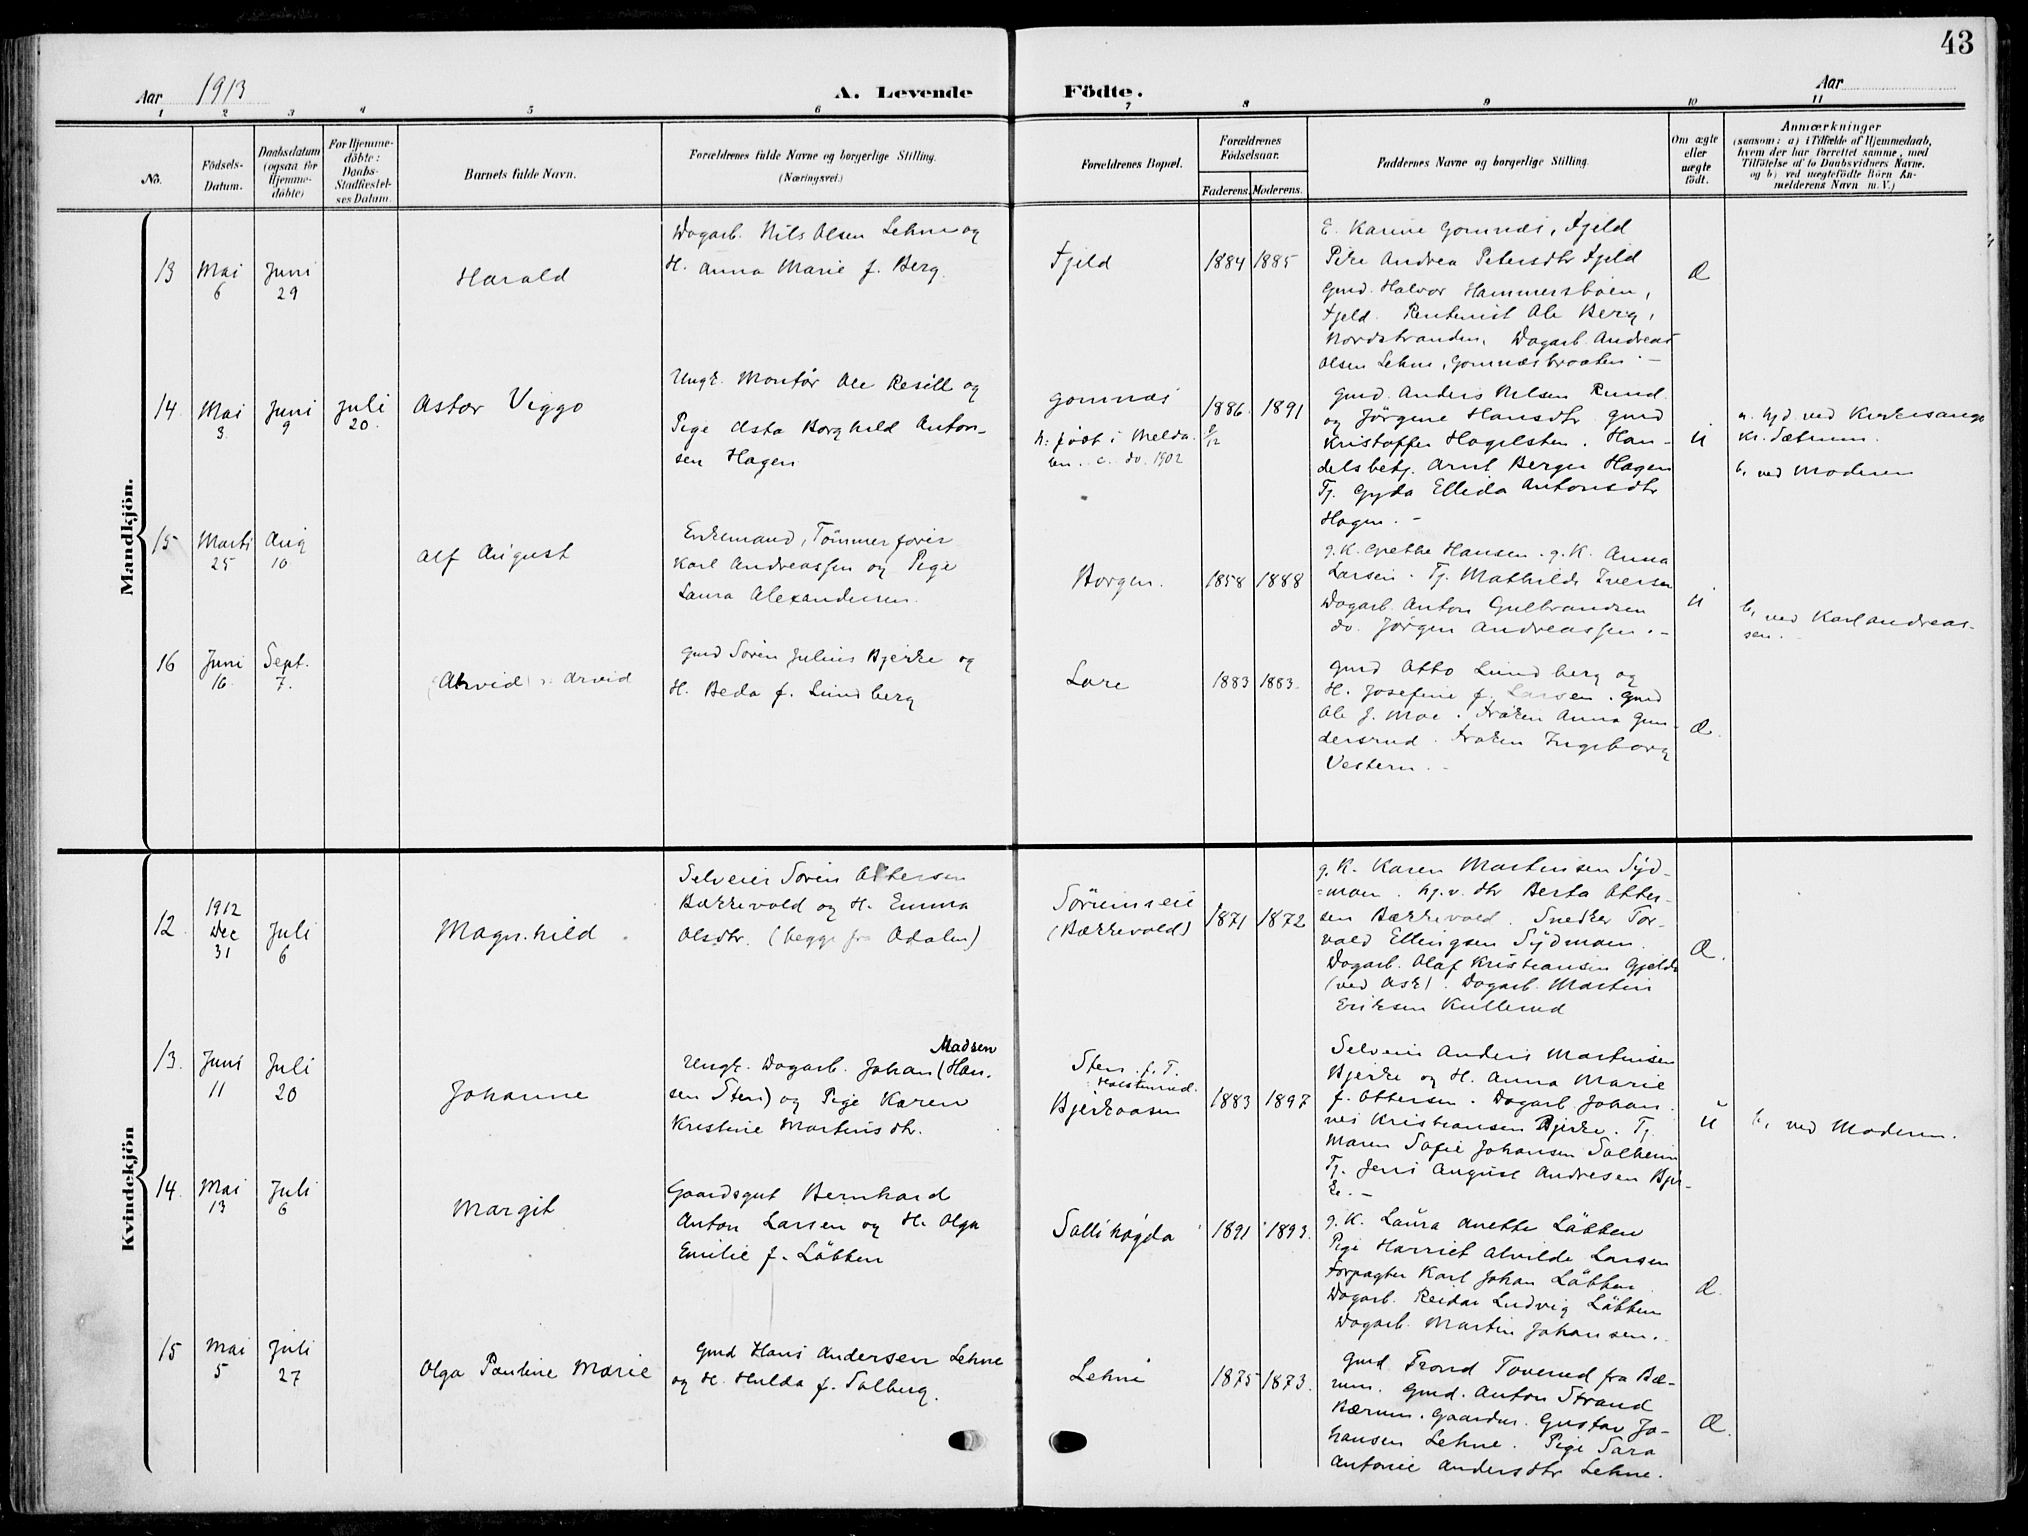 43
Aar 1913
A. Levende
Födte.
Aar
1 2 3 4 5 6 7 8 9 10 11
No.
Födsels-
Datum.
Daabsdatum
(ogsaa for
Hjemme-
döbte)
For Hjemme-
döbte:
Daabs-
Stadfæstel-
ses Datum.
Barnets fulde Navn.
Forældrenes fulde Navne og borgerlige Stilling.
(Næringsvei.)
Forældrenes Bopæl.
Forældrenes
Födselsaar.
Faderens. Moderens.
Faddernes Navne og borgerlige Stilling.
Om ægte
eller
uægte
födt.
Anmærkninger
(saasom: a) i Tilfælde af Hjemmedaab,
hvem der har forrettet samme, med
Tilföielse af to Daabsvidners Navne.
og b) ved uægtefödte Börn An-
melderens Navn m. V.)
Mandkjön.
13
Mai
6
Juni
29
Harald
Dagarb. Nils Olsen Lehne og
H. Anna Marie f. Berg.
Fjeld
1884 1885
E. Karine Gomnæs, Fjeld
Pike Andrea Petersdtr Fjeld
Gmd. Halvor Hammersbøen,
Fjeld. Rentenist Ole Berg,
Nordstranden. Dagarb. Andreas
Olsen Lehne, Gomnæsbraaten. -
Æ
14
Mai
3
Juni
9
Juli
20
Astor Viggo
Ungk. Montør Ole Resell og
Pige Asta Borghild Anton-
sen Hagen
Gomnæs
h: født i Melda-
len. c. do. 1902
1886 1891
8/12
Gmd. Anders Nilsen Rund
og Jørgine Hansdtr Gmd
Kristoffer Hagelsten. Han-
delsbetj. Arnt Berger Hagen
Tj. Gyda Ellida Antonsdtr
Hagen. -
U
a. hjd. ved Kirkesanger
Kr. Sætrum.
b, ved Moderen
15
Marts
25
Aug
10
Alf August
Enkemand, Tømmerfører
Karl Andreassen og Pige
Laura Alexandersen.
Borgen.
1858 1888
g. K. Grethe Hansen. g. K. Anna
Larsen. Tj. Mathilde Iversen
Dagarb. Anton Gulbrandsen
do. Jørgen Andreassen. -
U
b, ved Karl Andreas-
sen.
16
Juni
16
Sept.
7.
(Ahvid) Arvid
Gmd Søren Julius Bjerke og
H. Beda f. Lundberg
Lore
1883 1883
Gmd Otto Lundberg og
H. Josefine f. Larsen. Gmd
Ole J. Moe. Frøken Anna Gun-
dersrud. Frøken Ingeborg
Vestern. -
Æ
Kvindekjön
12
1912
Dec
31
Juli
6
Magnhild
Selveier Søren Ottersen
Bækkevold og H. Emma
Olsdtr. (begge fra Ådalen)
Sørumseie
(Bækkevold)
1871 1872
g. K. Karen Martinsen Syd-
=moen. hj.v. dtr Berta Otter-
sen Bækkevold. Snedker Tor-
vald Ellingsen Sydmoen.
Dagarb. Olaf Kristiansen Gjelde
(ved Ask). Dagarb. Martin
Eriksen Kullerud
Æ.
13.
Juni
11
Juli
20
Johanne
Ungk. Dagarb. Johan (Han-
Madsen
sen Sten) og Pige Karen
Kristine Martinsdtr.
Sten. f. T.
Halstenrud.
Bjerkaasen
1883 1897
Selveier Anders Martinsen
Bjerke og H. Anna Marie
f. Ottersen. Dagarb. Johan-
nes Kristiansen Bjerke. Tj.
Maren Sofie Johansen Solheim
Tj. Jens August Andresen Bjer-
ke. -
U
b, ved Moderen.
14.
Mai
13
Juli
6
Margit
Gaardsgut Bernhard
Anton Larsen og H. Olga
Emilie f. Løbben
Sollihøgda
1891 1893.
g. K. Laura Anette Løbben
Pige Harriet Alvilde Larsen
Forpagter Karl Johan Løbben
Dagarb. Reidar Ludvig Løbben
Dagarb. Martin Johansen.
Æ.
15
Mai
5
Juli
27
Olga Pauline Marie
Gmd Hans Andersen Lehne
og H. Hulda f. Solberg.
Lehne
1875 1873.
Gmd. Trond Toverud fra Bæ-
rum. Gmd. Anton Strand
Bærum. Gaardbr. Gustav Jo-
hansen Lehne. Pige Sara
Antonie Andersdtr Lehne.
Æ.